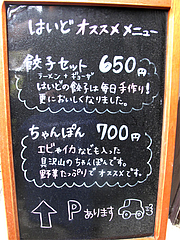 はいどオススメメニュー
餃子セット 650円
ラーメン+ギョーザ
はいどの餃子は毎日手作り!
更においしくなりました。
ちゃんぽん 700円
エビやイカなども入った
具沢山のちゃんぽんです。
野菜たっぷりでオススメです。
↑ P あります